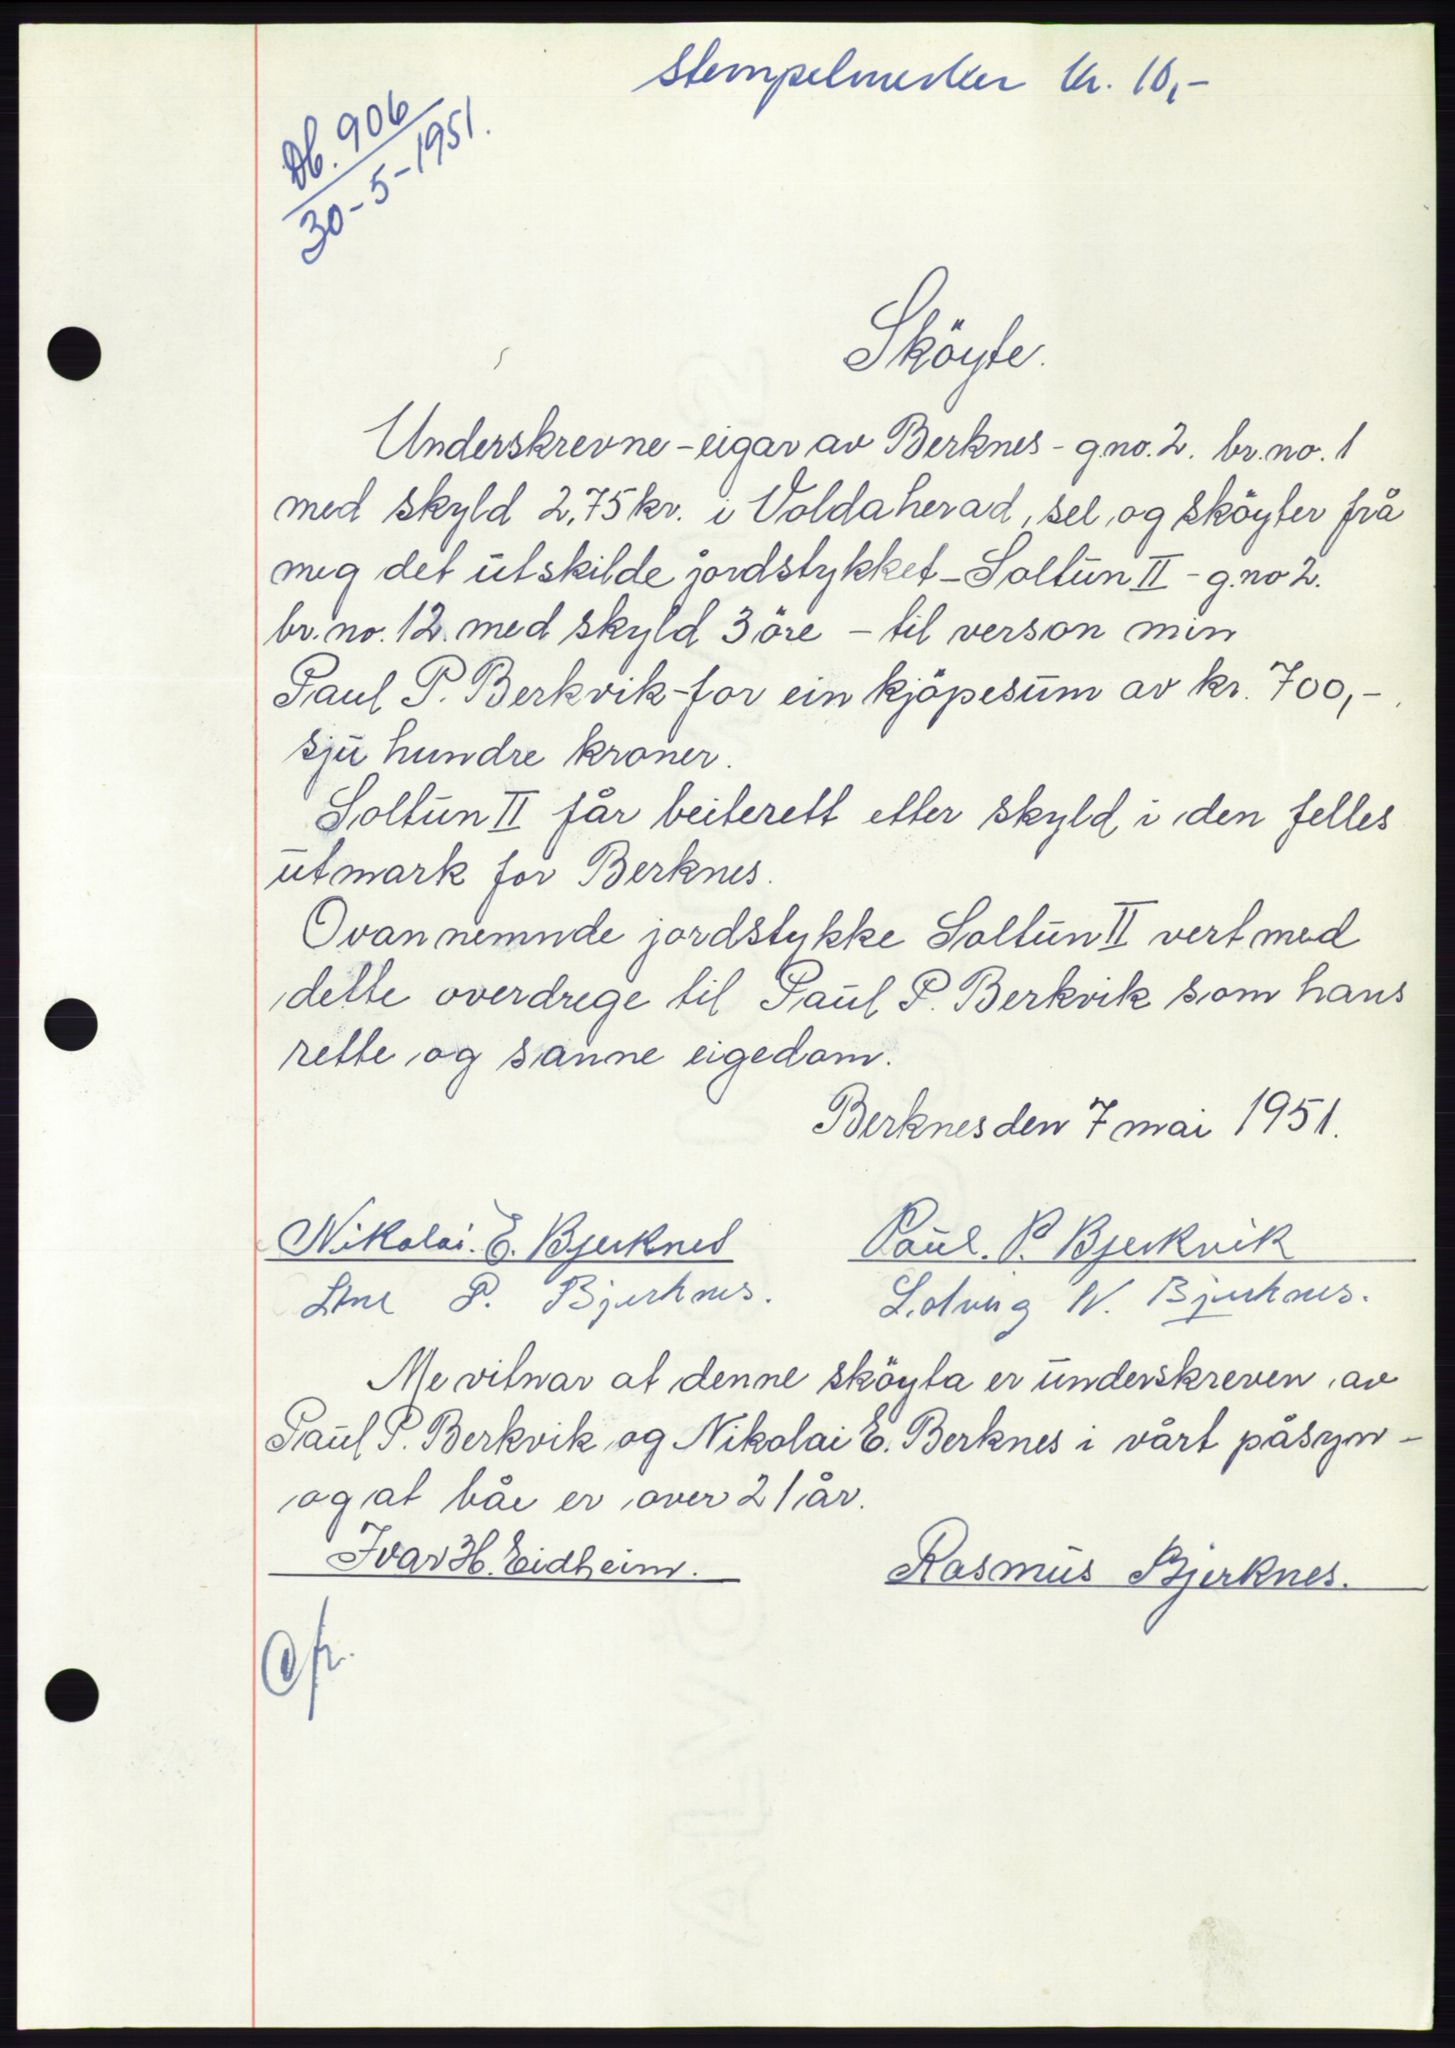 Stempelmerker kr. 10,-
Db. 906
30-5-1951.
Sköyte.
Underskrevne - eigar av Berknes - g.no. 2. br. no. 1
med skyld 2,75 kr. i Volda herad, sel og sköyter frå
meg det utskilde jordstykket - Soltun II - g.no 2.
br. no. 12. med skyld 3 öre - til verson min
Paul P. Berkvik - for ein kjöpesum av kr. 700,-
sju hundre kroner.
Soltun II får beiterett etter skyld i den felles
utmark for Berknes.
Ovannemnde jordstykke Soltun II vert med
dette overdrege til Paul P. Berkvik som hans
rette og sanne eigedom.
Berknes den 7 mai 1951.
Nikolai. E. Bjerknes Paul. P. Bjerkvik
P. Bjerknes. Lidvig N. Bjerknes.
Me vitnar at denne sköyta er underskreven av
Paul P. Berkvik og Nikolai E. Berknes i vårt påsyn -
og at båe er over 21 år.
Ivar H. Eidheim. Rasmus Bjerknes.